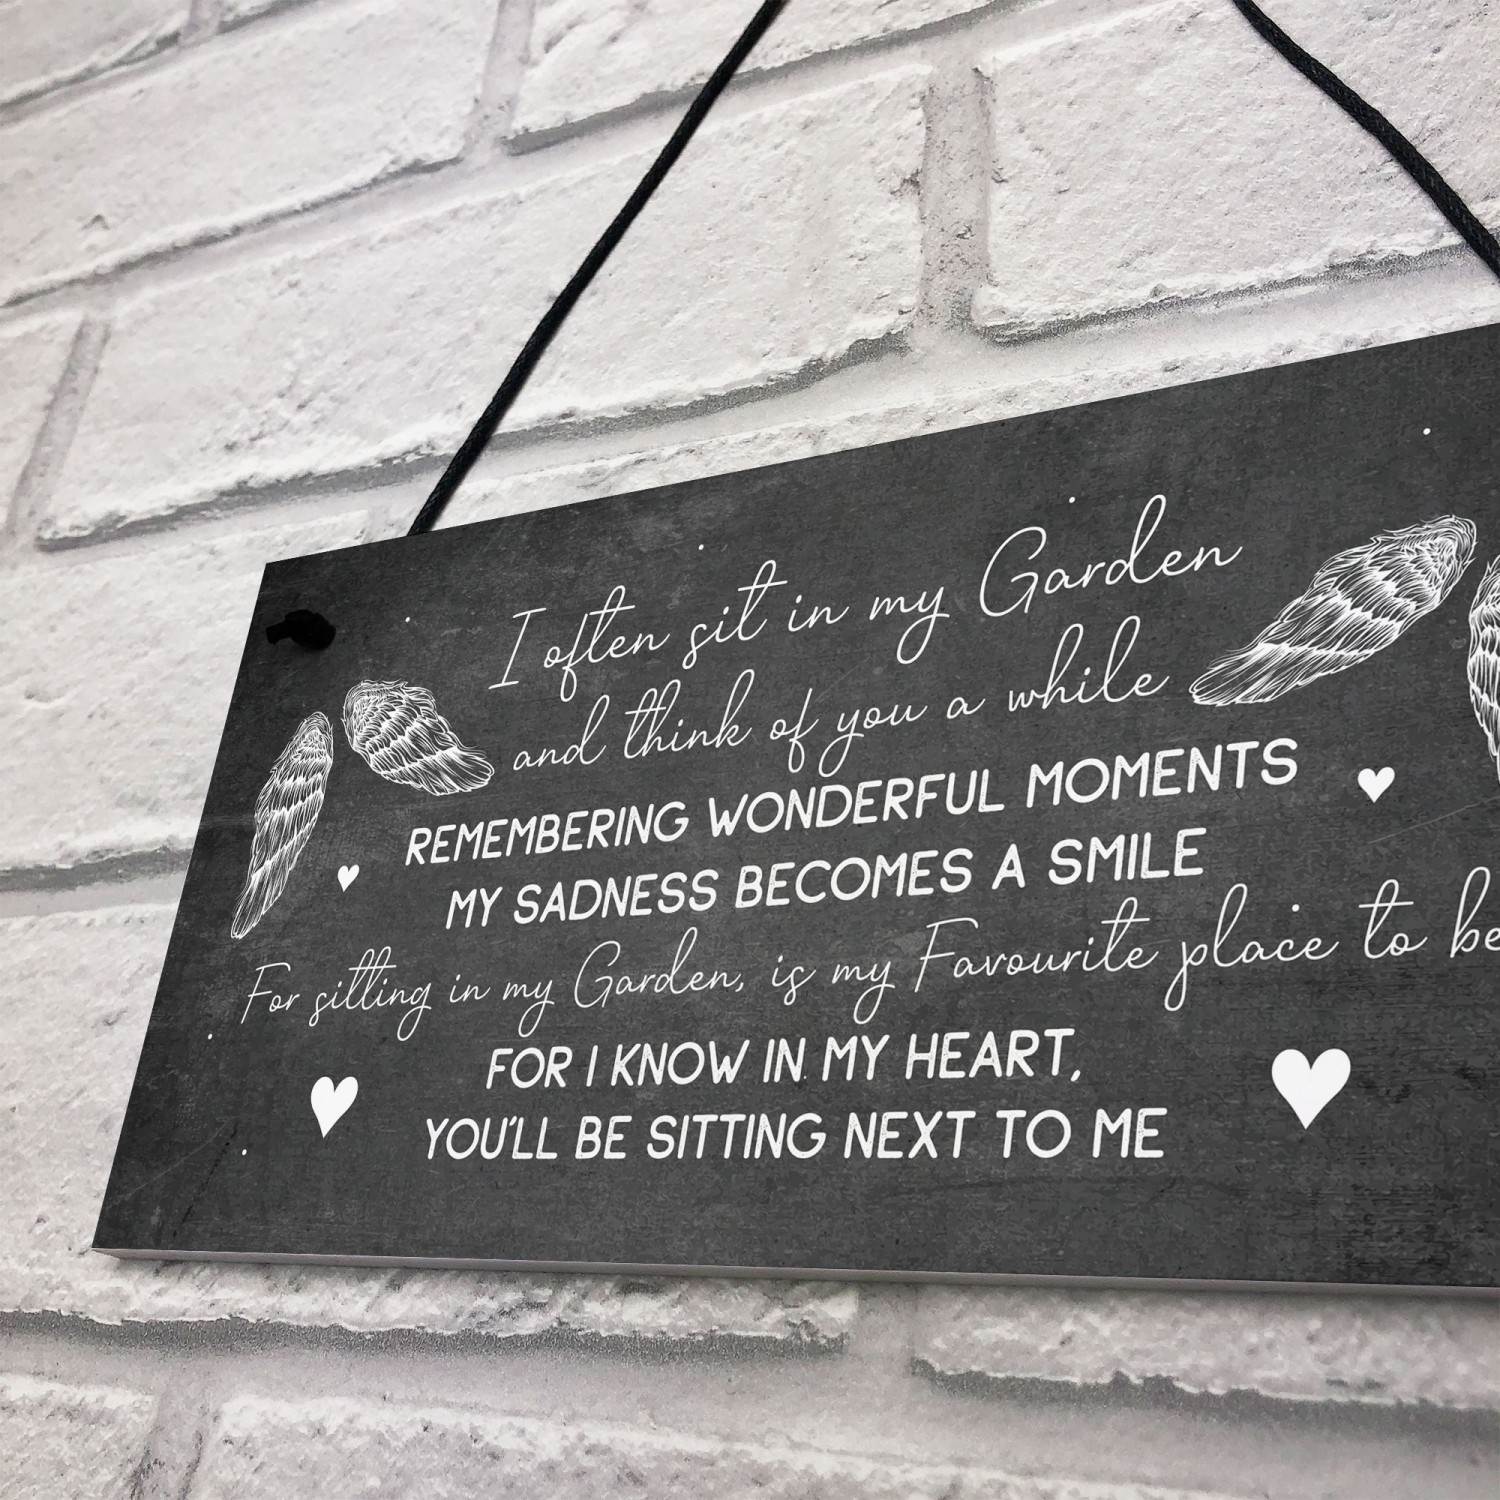 I often sit in my Garden
and think of you a while
REMEMBERING WONDERFUL MOMENTS
MY SADNESS BECOMES A SMILE
For sitting in my Garden, is my Favourite place to be
FOR I KNOW IN MY HEART,
YOU'LL BE SITTING NEXT TO ME